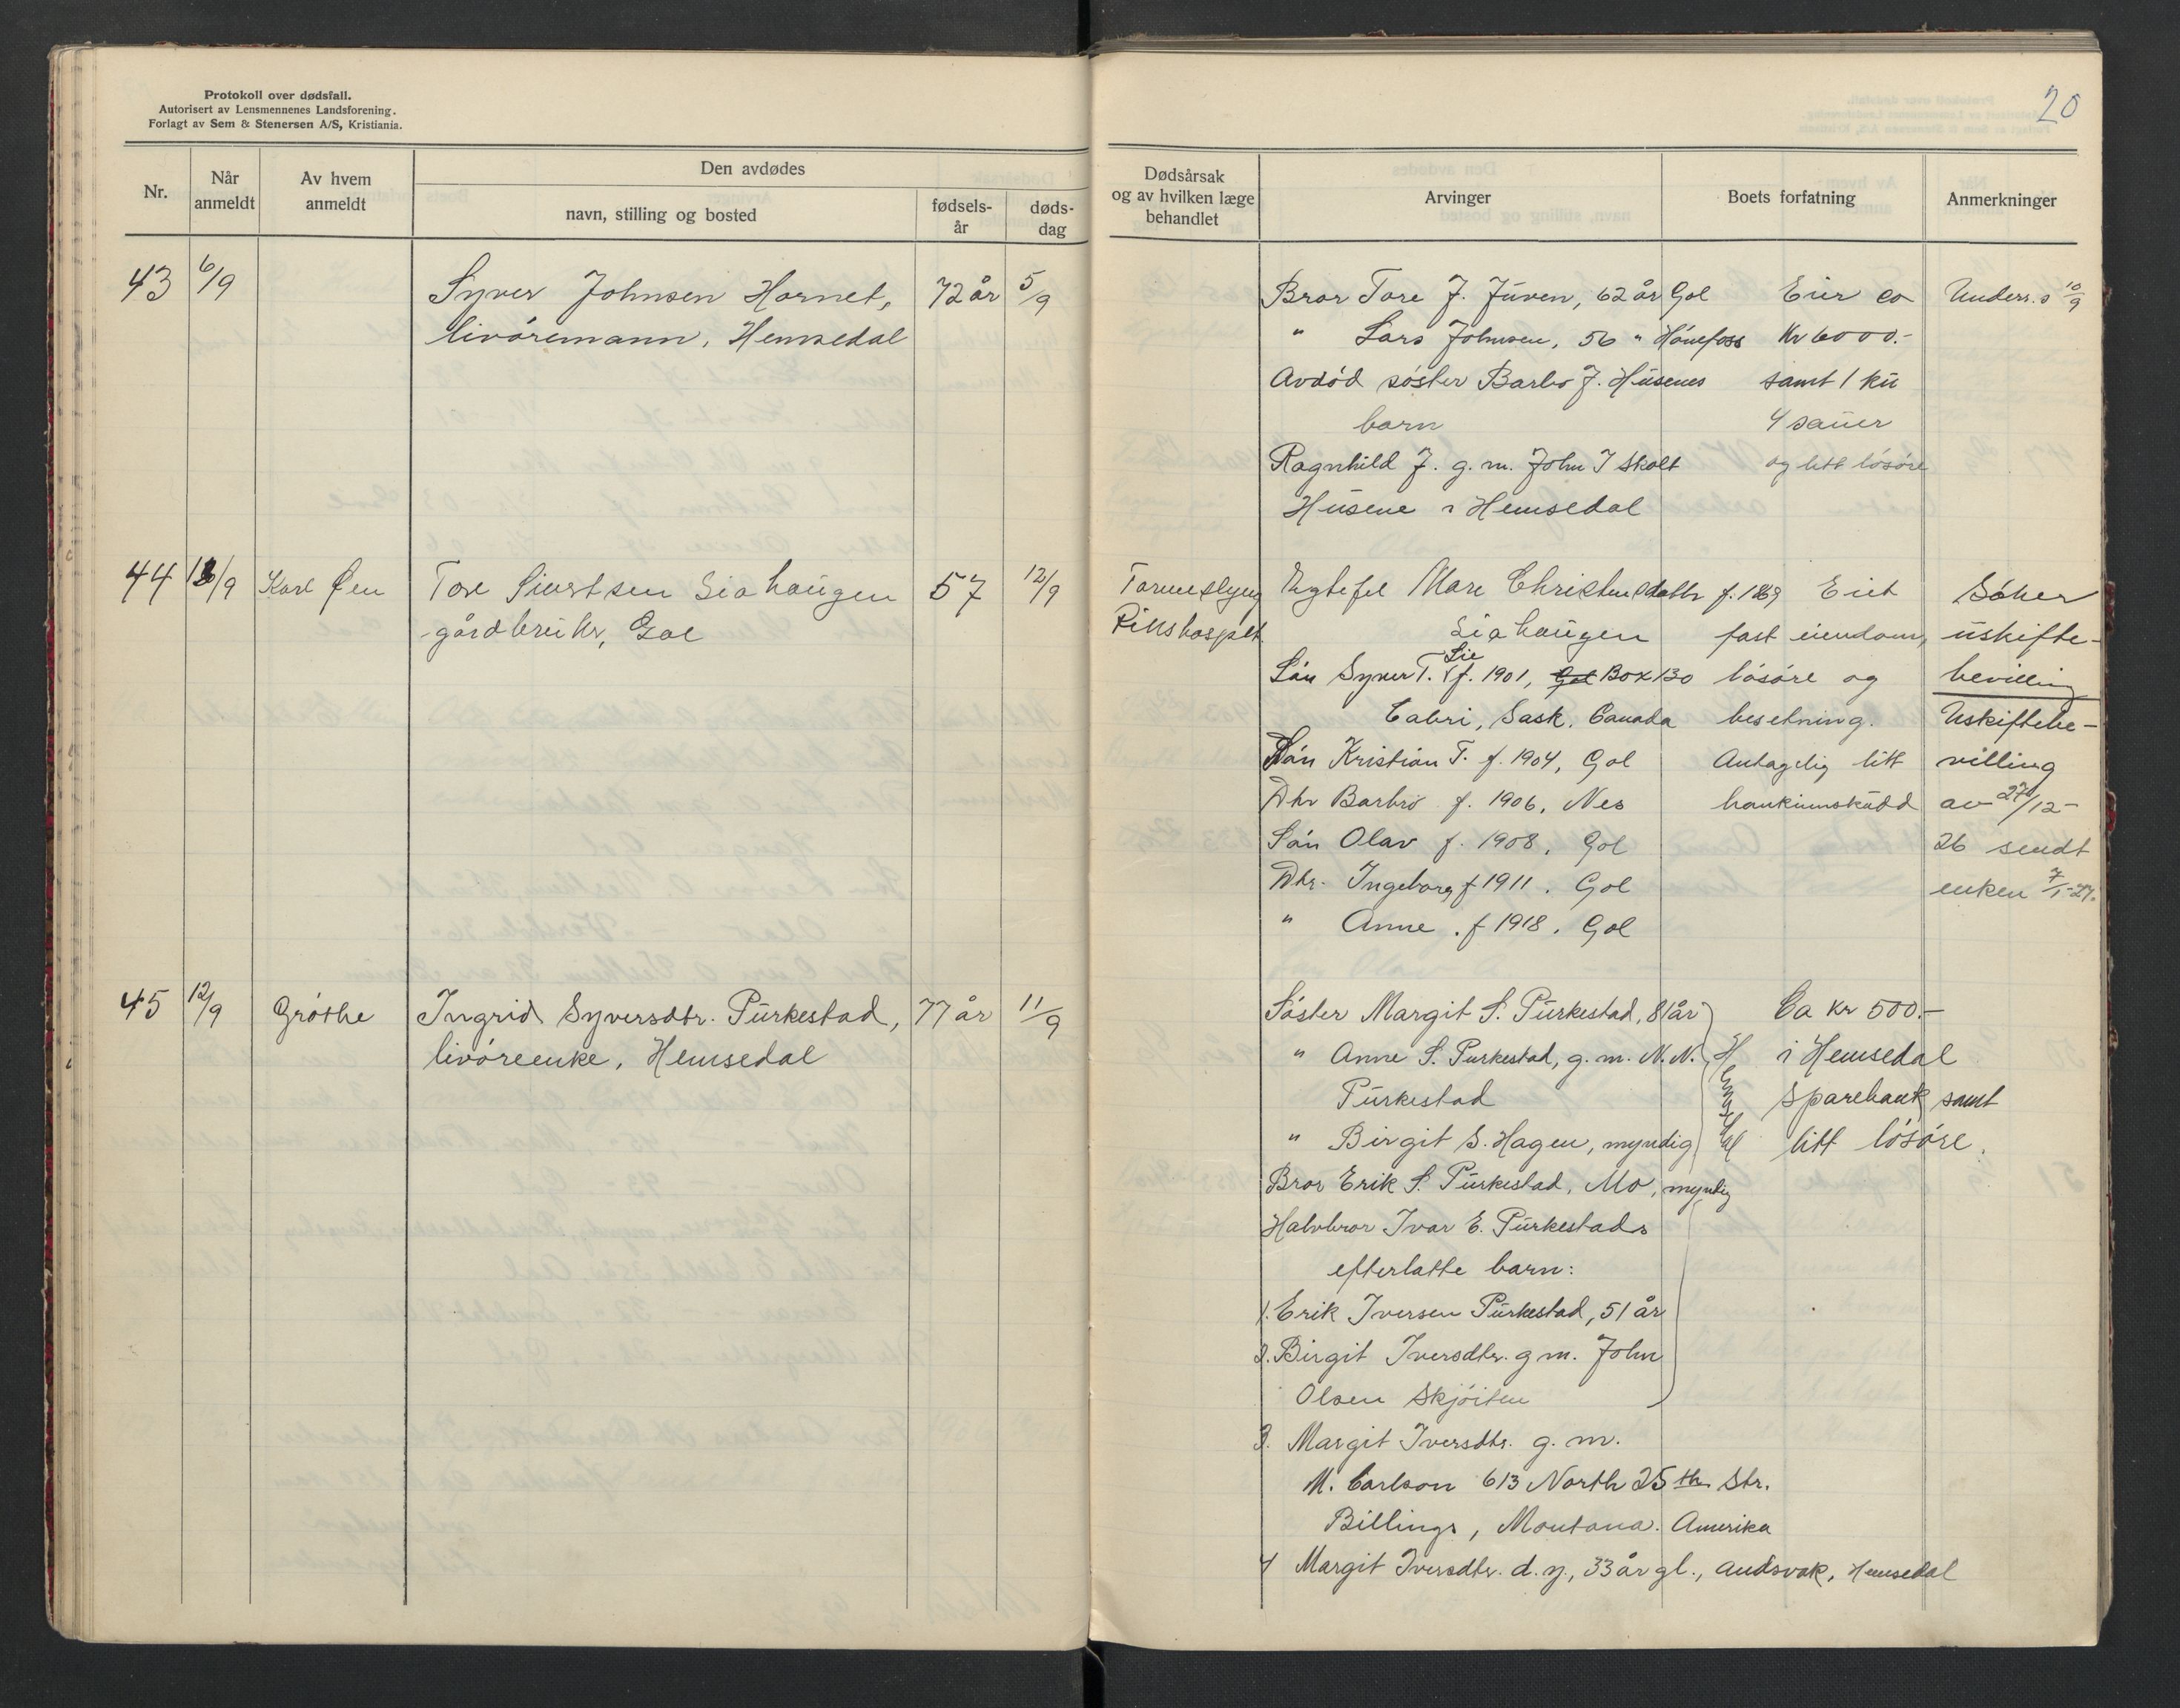 Protokoll over dødsfall.
Autorisert av Lensmennenes Landsforening.
Forlagt av Sem & Stenersen A/S, Kristiania.
20
Nr.
Når anmeldt
Av hvem anmeldt
Den avdødes
navn, stilling og bosted
fødsels-år
døds-dag
Dødsårsak og av hvilken læge behandlet
Arvinger
Boets forfatning
Anmerkninger
43 6/9 Syver Johnsen Hornet, 72 år 5/9
livøremann, Hemsedal
Bror Tore J. Juven, 62 år Gol Eier ca Unders. s 10/9
" Lars Johnsen, 56 " Hønefoss Kr 6000.-
Avdød søster Barbo J. Husenes samt 1 ku
barn 4 sauer
Ragnhild J. g. m. John J Skolt og litt løsøre
Husene i Hemsedal
44 13/9 Karl Øen Tore Sivertsen Liahaugen 57 12/9
gårdbruker, Gol
Tarmeslyng Egtefel Mari Christensdattr f. 1869 Eiet Søker
Rikshospit. Liahaugen fast eiendom, uskifte-
Søn Syver T. Lie f. 1901, Gol Box 130 løsøre og bevilling
Cabri, Sask. Canada besetning. Uskiftebe-
Søn Kristian T. f. 1904, Gol Antagelig litt villing
Dtr Barbro f. 1906, Nes bankinnskudd av 27/12-
Søn Olav f. 1908, Gol 26 sendt
Dtr. Ingeborg f 1911. Gol enken 7/1-27.
" Anne . f 1918. Gol
45 12/9 Grøthe Ingrid Syversdtr. Purkestad, 77 år 11/9
livøreenke, Hemsedal
Søster Margit S. Purkestad, 81 år Ca Kr 500.-
" Anne S. Purkestad, g. m. N. N. i Hemsedal
Purkestad Sparebank samt
" Birgit S. Hagen, myndig litt løsøre.
Hemsedal
Bror Erik S. Purkestad, Mo, myndig
Halvbror Ivar E. Purkestads
efterlatte barn:
1. Erik Iversen Purkestad, 51 år
2. Birgit Iversdtr. g m. John
Olsen Skjøiten
3. Margit Iversdtr. g. m.
M. Carlson 613 North 25th Str.
Billings, Montana. Amerika
4 Margit Iversdtr. d. y., 33 år gl., åndsvak, Hemsedal